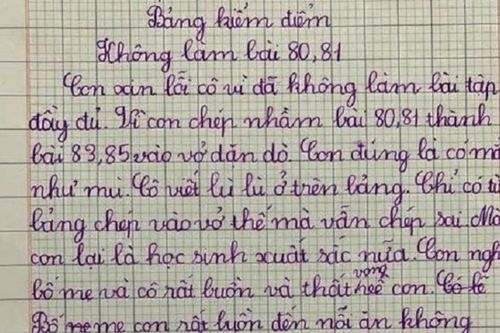 Bảng kiểm điểm
Không làm bài 80,81
Con xin lỗi cô vì đã không làm bài tập
đầy đủ. Vì con chép nhầm bài 80,81 thành
bài 83,85 vào vở dặn dò. Con đúng là có mắ
như mù. Cô viết lù lù ở trên bảng. Chỉ có từ
bảng chép vào vở thế mà vẫn chép sai. Mà
con lại là học sinh xuất sắc nữa. Con ngh
bố mẹ và cô rất buồn và thất vọng về con.
Bố mẹ con rất buồn đến nỗi ăn không